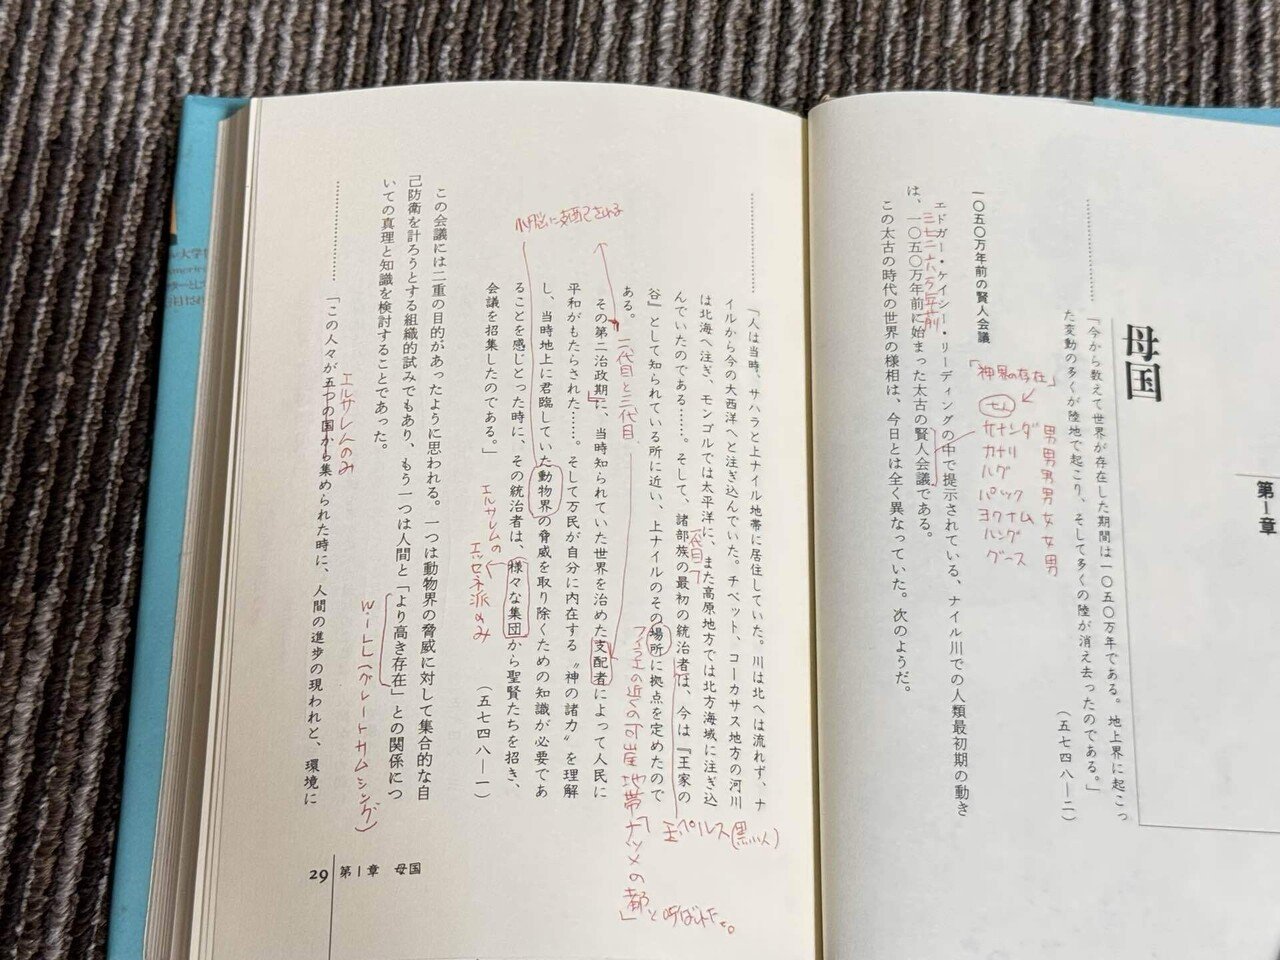 第Ⅰ章
母国
「今から数えて世界が存在した期間は一〇五〇万年である。地上界に起こっ
た変動の多くが陸地で起こり、そして多くの陸が消え去ったのである。」
(五七四八―二)
一〇五〇万年前の賢人会議
エドガー・ケイシー・リーディングの中で提示されている、ナイル川での人類最初期の動き
は、一〇五〇万年前に始まった太古の賢人会議である。
この太古の時代の世界の様相は、今日とは全く異なっていた。次のようだ。
「神界の存在」
カナリ 男
ハグ 男
パック 男
ヨクナム 女
ハング 女
グース 男
「人は当時、サハラと上ナイル地帯に居住していた。川は北へは流れず、ナ
イルから今の大西洋へと注ぎ込んでいた。チベット、コーカサス地方の河川
は北海へ注ぎ、モンゴルでは太平洋に、また高原地方では北方海域に注ぎ込
んでいたのである……。そして、諸部族の最初の統治者は、今は『王家の
谷』として知られている所に近い、上ナイルのその場所に拠点を定めたので
ある。
その第二治政期に、当時知られていた世界を治めた支配者によって人民に
平和がもたらされた……。そして万民が自分に内在する〝神の諸力〟を理解
し、当時地上に君臨していた動物界の脅威を取り除くための知識が必要であ
ることを感じとった時に、その統治者は、様々な集団から聖賢たちを招き、
会議を招集したのである。」
(五七四八―一)
この会議には二重の目的があったように思われる。一つは動物界の脅威に対して集合的な自
己防衛を計ろうとする組織的試みでもあり、もう一つは人間と「より高き存在」との関係につ
いての真理と知識を検討することであった。
「この人々が五つの国から集められた時に、人間の進歩の現われと、環境に
一代目
王ペルス(黒い人)
二代目と三代目
エルサレムの
エッセネ派のみ
エルサレムのみ
29
第Ⅰ章 母国